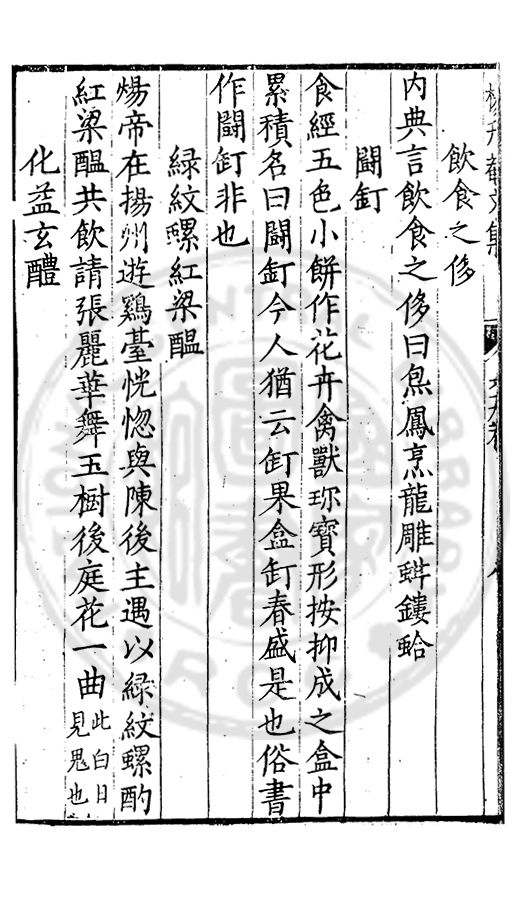 飲食之侈
内典言飲食之侈曰炰鳳烹龍雕蚶鏤蛤
鬪釘
食經五色小餅作花卉禽獸珎寳形按抑成之盒中
累積名曰鬪釘今人猶云釘果盒釘春盛是也俗書
作鬪釘非也
緑紋螺紅梁醖
煬帝在揚州遊鷄臺恍惚與陳後主遇以緑紋螺酌
紅梁醖共飲請張麗華舞玉樹後庭花一曲此白日見鬼也
化益玄醴